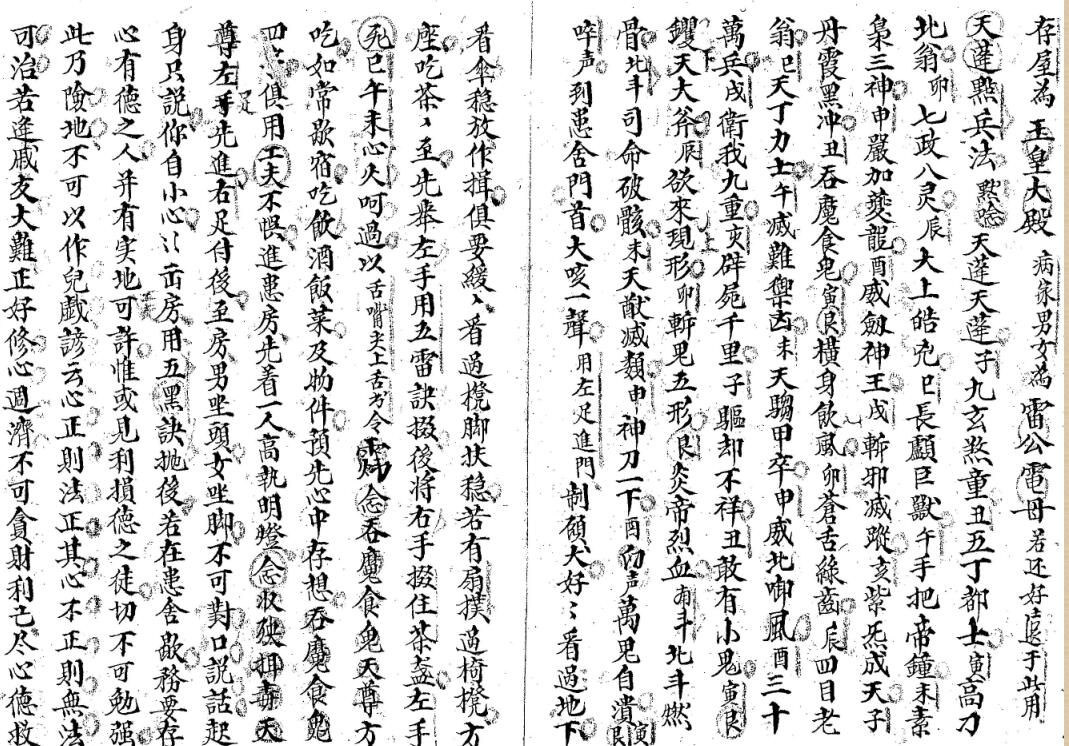 存屋為玉皇大殿 病家男女為雷公電母 若还好遠于此用
天蓬點兵法 默唸 天蓬天蓬子九玄煞童丑五丁都士寅高刀
北翁卯七政八灵辰大上皓兇巳長顱巨獸午手把帝鐘未素
梟三神申嚴加夔龍酉威劍神王戌斬邪滅蹤亥紫炁成天子
丹霞黑冲丑吞魔食鬼寅艮橫身飲風卯蒼舌綠齒辰四目老
翁巳天丁力士午滅難禦凶未天騶甲卒申威北啣風酉三十
萬兵戌衛我九重亥辟屍千里子驅却不祥丑敢有小鬼寅艮
钁天大斧辰欲來現形卯斬鬼五形艮炎帝烈血南斗北斗燃
骨北斗司命破骸未天猷滅類申神刀一下酉 声萬鬼自潰
啐声到患舍門首大咳一聲用左足進門 大好〻看過地下
看傘稳放作揖俱要緩〻看過櫈脚扶稳若有扇撲過椅櫈方
座吃茶〻至先舉左手用五雷訣掇後將右手掇住茶盞左手
死巳午未心火呵過以舌嘴尖上舌为令 念吞魔食鬼天尊方
吃如常歇宿吃飲酒飯菜及物件預先心中存想吞魔食鬼
四 俱用工夫不惧進患房先着一人高執明燈念收殃 天
尊左手先進右足付後至房男坐頭女坐脚不可對口説話起
身只説你自小心〻出房用五黑訣拋後若在患舍歇務要存
心有德之人并有实地可許惟或見利損德之徒切不可勉强
此乃險地不可以作兒戯諺云心正則法正其心不正則無法
可治若逢戚友大難正好修心週濟不可貪財利己尽心德救